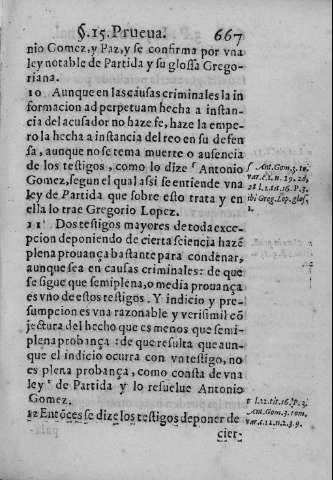 §.15. Prueua. 667
nio Gomez, y Paz, y se confirma por vna
ley notable de Partida y su glossa Grego-
riana.
10 Aunque en las causas criminales la in
formacion ad perpetuam hecha a instan-
cia del acusador no haze fe, haze la empe-
ro la hecha a instancia del reo en su defen
sa, aunque no se tema muerte o ausencia
de los testigos, como lo dize ſ Antonio
Gomez, segun el qual assi se entiende vna
ley de Partida que sobre esto trata y en
ella lo trae Gregorio Lopez.
ſ Ant. Gom. 3. to.
var. c. 1. n. 29. &
l. 2. tit. 16. P. 3.
ibi Greg. Lop. glos.
1.
11 Dos testigos mayores de toda exce-
pcion deponiendo de cierta sciencia hazẽ
plena prouança bastante para condenar,
aunque sea en causas criminales: de que
se sigue que semiplena, o media prouança
es vno de estos testigos. Y indicio y pre-
sumpcion es vna razonable y verisimil cõ
jectura del hecho que es menos que semi-
plena probança: de que resulta que aun-
que el indicio ocurra con vn testigo, no
es plena probança, como consta de vna
ley t de Partida y lo resuelue Antonio
Gomez.
12 Entõces se dize los testigos deponer de
cier-
t l. 32. tit. 16. P. 3.
Ant. Gom. 3. tom.
var. c. 12. n. 2. 3. 9.